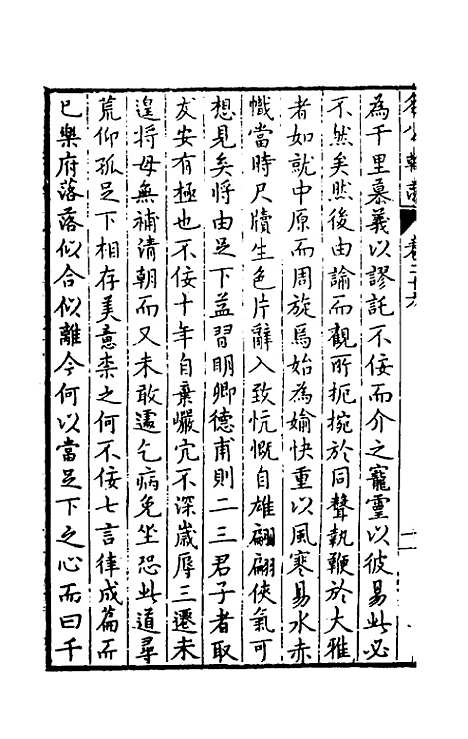 為千里慕義以謬託不佞而介之寵靈以彼易此必
不然矣然後由諭而觀所扼捥於同聲執鞭於大雅
者如就中原而周旋焉始為婾快重以風寒易水赤
幟當時尺牘生色片辭入致忼慨自雄翩翩俠氣可
想見矣將由足下益習明卿德甫則二三君子者取
友安有極也不佞十年自棄巖穴不深歲辱三遷未
遑將母無補清朝而又未敢遽乞病免坐恐此道尋
荒仰孤足下相存美意柰之何不佞七言律成篇而
已樂府落落似合似離今何以當足下之心而曰千
卷二十九